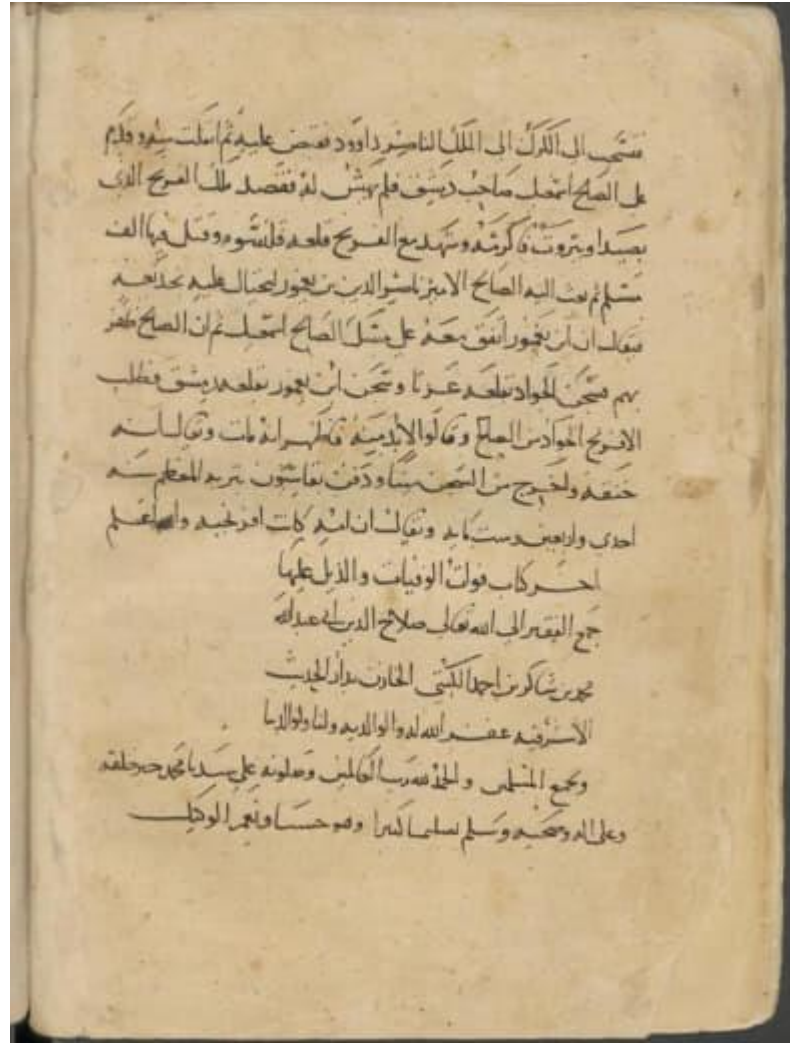 فتسحب الى الكرك الى الملك الناصر داوود فقبض عليه ثم انفلت منه وقدم
على الصالح اسمعيل صاحب دمشق فلم يهش له فقصد ملك الفرنج الذى
بصيدا وبيروت فاكرمه وشهد مع الفرنج قلعه قلنسوه وقتل فيها الف
مسلم ثم بعث اليه الصالح الامير ناصر الدين بن يغمور ليحتال عليه بخديعه
فيقال ان ابن يغمور اتفق معه على مسك الصالح اسمعيل ثم ان الصالح ظفر
بهم فسجن الجواد بقلعه عزتا وسجن ابن يغمور بقلعه دمشق فطلب
الافرنج الجواد من الصالح وقالوا لابد منه فاظهر انه مات ويقال انه
خنقه واخرج من السجن ميتا ودفن بقاسيون بتربه المعظم سنه
احدى واربعين وست مايه ويقال ان امه كانت افرنجيه والله اعلم
اخر كتاب فوات الوفيات والذيل عليها
جمع الفقير الى الله تعالى صلاح الدين ابى عبد الله
محمد بن شاكر بن احمد الكتبى الخازن بدار الحديث
الاشرفيه عفر الله له ولوالديه ولنا ولوالدينا
وجميع المسلمين والحمد لله رب العالمين وصلوته على سيدنا محمد خير خلقه
وعلى اله وصحبه وسلم تسليما كثيرا وهو حسبنا ونعم الوكيل